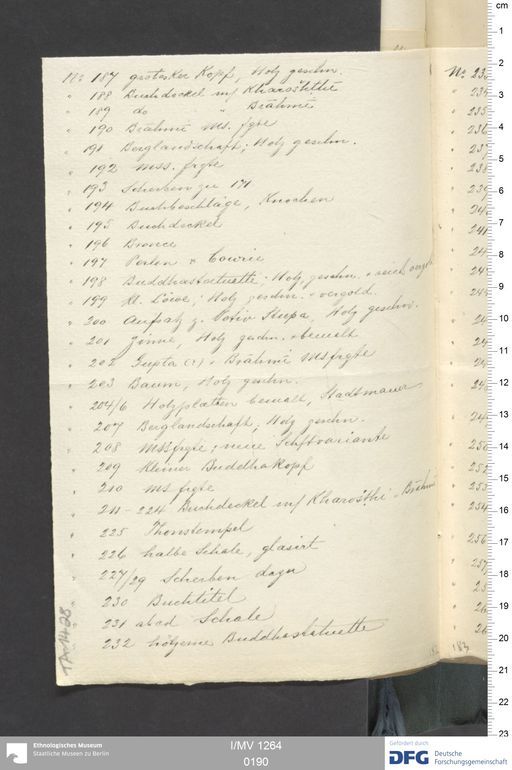 No 187 grotesker Kopf, Holz geschn.
" 188 Buchdeckel m/ Kharosthi
" 189 do " Brāhmī
" 190 Brāhmī Ms. frgte
" 191 Berglandschaft; Holz geschn.
" 192 Mss. frgte
" 193 Scherben zu 171
" 194 Buchbeschläge, Knochen
" 195 Buchdeckel
" 196 Bronce
" 197 Perlen & Cowrie
" 198 Buddhastatuette; Holz, geschn. reich vergold
" 199 Kl. Löwe; Holz geschn. vergold.
" 200 Aufsatz z. Votiv Stupa, Holz geschn.
" 201 Zinne, Holz geschn. bemalt
" 202 Gupta (?) Brāhmī Msfrgte
" 203 Baum, Holz geschn.
" 204/6 Holzplatten bemalt, Stadtmauer
" 207 Berglandschaft, Holz geschn.
" 208 Mssfrgte; neue Schftvariante
" 209 Kleiner Buddhakopf
" 210 Ms frgte
" 211-224 Buchdeckel m/ Kharosthi Brāhm
" 225 Thonstempel
" 226 halbe Schale, glasirt
" 227/29 Scherben dazu
" 230 Buchtitel
" 231 abcd Schale
" 232 hölzerne Buddhastatuette
No 23
183
cm
1
2
3
4
5
6
7
8
9
10
11
12
13
14
15
16
17
18
19
20
21
22
23
Ethnologisches Museum
Staatliche Museen zu Berlin
I/MV 1264
0190
Gefördert durch
DFG Deutsche
Forschungsgemeinschaft